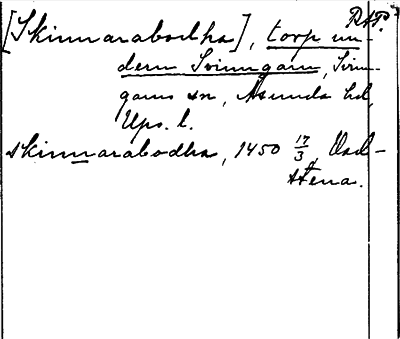 RAP.
[Skinnarabodha], torp un-
dern Svinngarn, Svin-
garns sn, Åsunda hd,
Ups. l.
skinnarabodha, 1450 17/3, Vad-
stena.